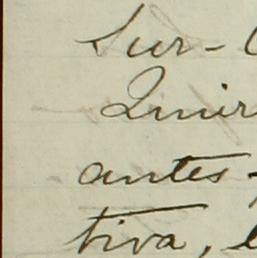 Sur-
Quir
antes-
tiva,